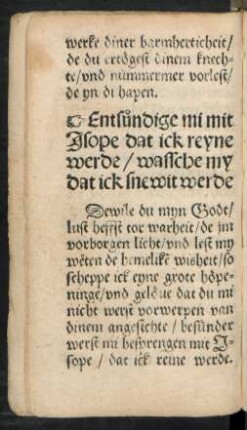 werke diner barmherticheit/
de du ertögest dinem knech-
te/vnd nümmermer vorlest/
de yn di hapen.
☞ Entsündige mi mit
Isope dat ick reyne
werde / wassche my
dat ick snewit werde
Dewile du myn Godt/
lust heffst tor warheit/de jm
vorborgen licht/vnd lest my
wēten de hemelike wisheit/so
scheppe ick eyne grote höpe-
ninge/vnd gelöue dat du mi
nicht werst vorwerpen van
dinem angesichte / besünder
werst mi besprengen mit I-
sope / dat ick reine werde.